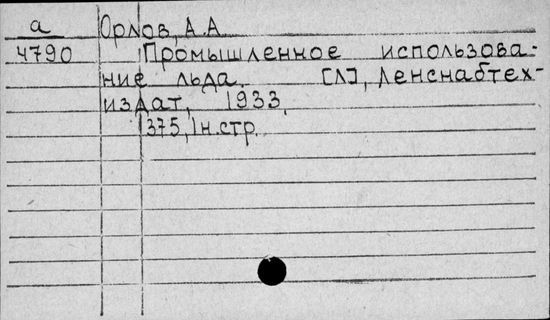 а Орлов, А.А
4790 Промышленное использова-
ние льда. [Л], Ленснабтех-
издат, 1933.
375, 1н.стр.